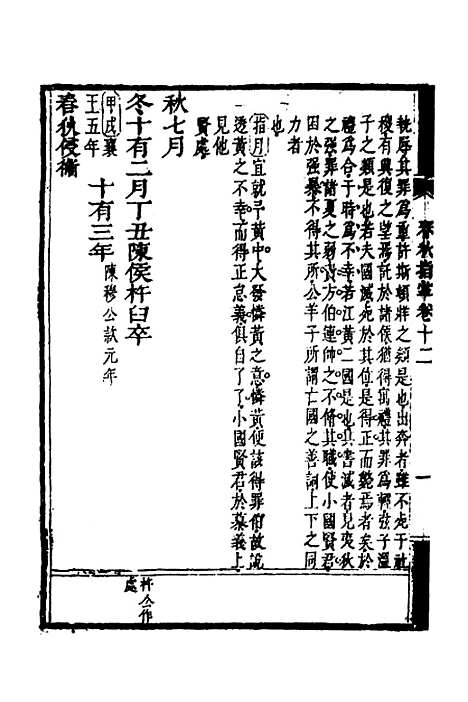 春秋指掌卷十二　一
執辱其罪為重許斯頓牂之類是也出奔者雖不死于社
稷有興復之望焉託於諸侯猶得寓禮其罪為輕弦子溫
子之類是也若夫國滅死於其位是得正而斃焉者矣於
禮為合于時為不幸若江黃二國是也其書滅者見夷狄
之強罪諸夏之弱責方伯連帥之不脩其職使小國賢君
困於強暴不得其所公羊子所謂亡國之善詞上下之同
力者
也
指月宜就子黃中大發憐黃之意憐黃便該得罪伯故說
透黃之不幸而得正意義俱自了了小國賢君於慕義上
見他
賢處
秋七月
冬十有二月丁丑陳侯杵臼卒
杵公作
處
甲戌襄
王五年
十有三年
陳穆公款元年
春狄侵衛